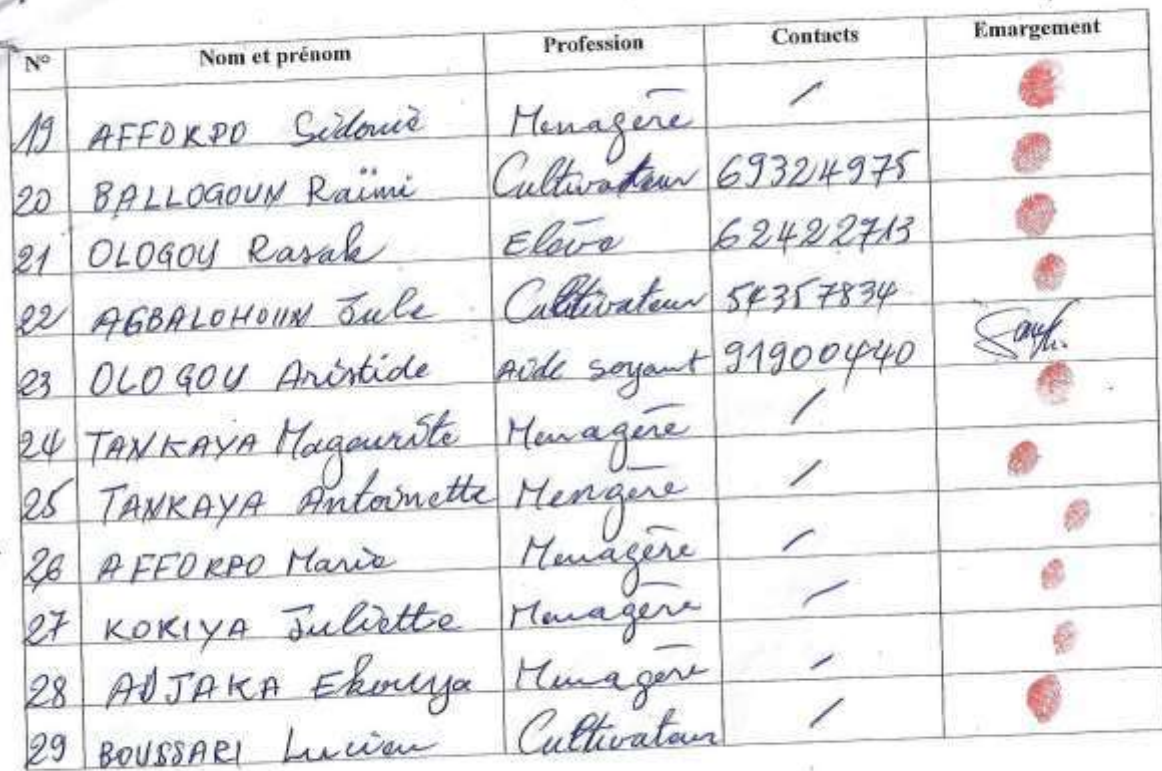 N° Nom et prénom Profession Contacts Emargement
19 AFFOKPO Sidonie Menagère /
20 BALLOGOUN Raïmi Cultivateur 69324975
21 OLOGOU Rasak Elève 62422713
22 AGBALOHOUN Jule Cultivateur 54357834
23 OLOGOU Aristide Aide soyant 91900440
24 TANKAYA Magourite Menagère /
25 TANKAYA Antoinette Mengère /
26 AFFOKPO Marie Menagère /
27 KOKIYA Juliette Menagère /
28 ADJAKA Ekouya Menagère /
29 BOUSSARI Lucien Cultivateur /